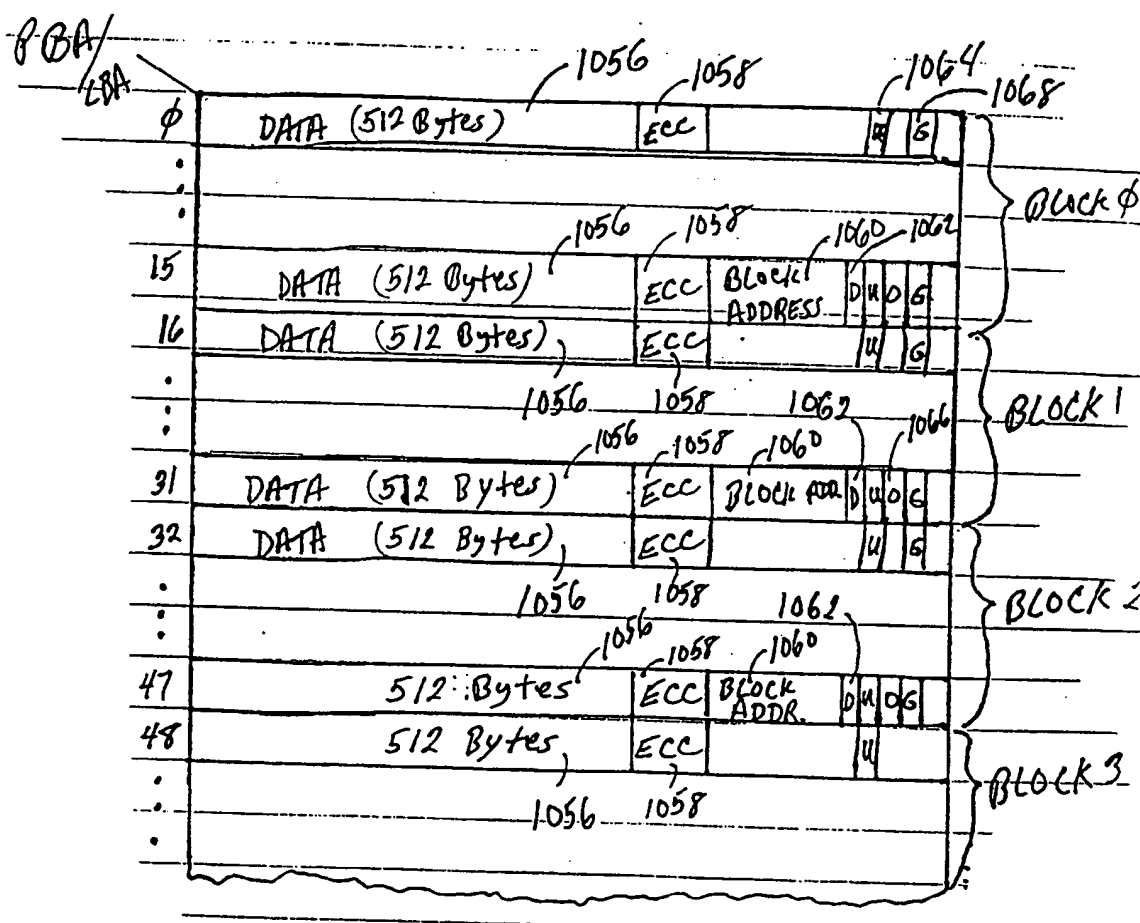 PBA/
LBA
1056 1058 1064 1068
φ DATA (512 Bytes) ECC U G
BLOCK φ
1056 1058 1060 1062
15 DATA (512 Bytes) ECC BLOCK ADDRESS D U O G
16 DATA (512 Bytes) ECC U G
1056 1058 1062 1066
BLOCK 1
1056 1058 1060
31 DATA (512 Bytes) ECC BLOCK ADD. D U O G
32 DATA (512 Bytes) ECC U G
1056 1058 1062
BLOCK 2
1056 1058 1060
47 512 Bytes ECC BLOCK ADDR. D U O G
48 512 Bytes ECC U
BLOCK 3
1056 1058